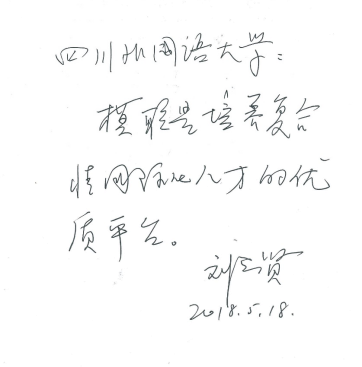 四川外国语大学：
模联是培养复合
性国际化人才的优
质平台。
刘志贤
2018.5.18.